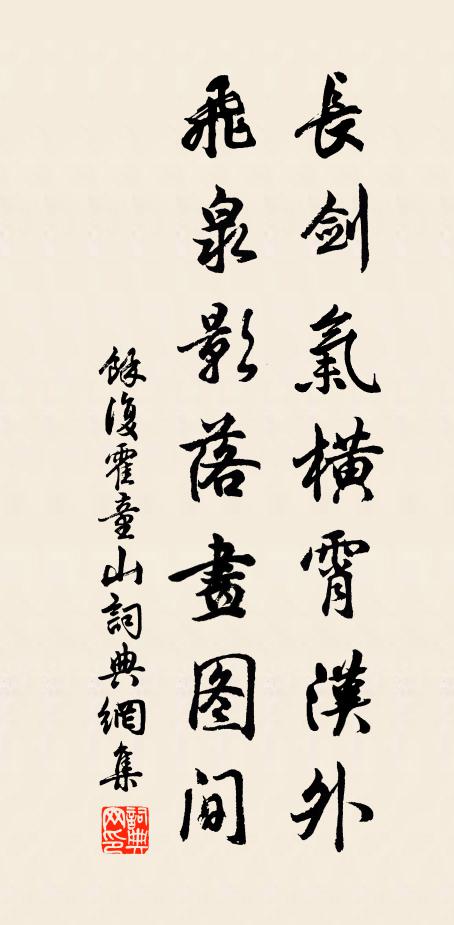 長劍氣橫霄漢外
飛泉影落畫图間
餘復霍童山詞典網集
詞典网印